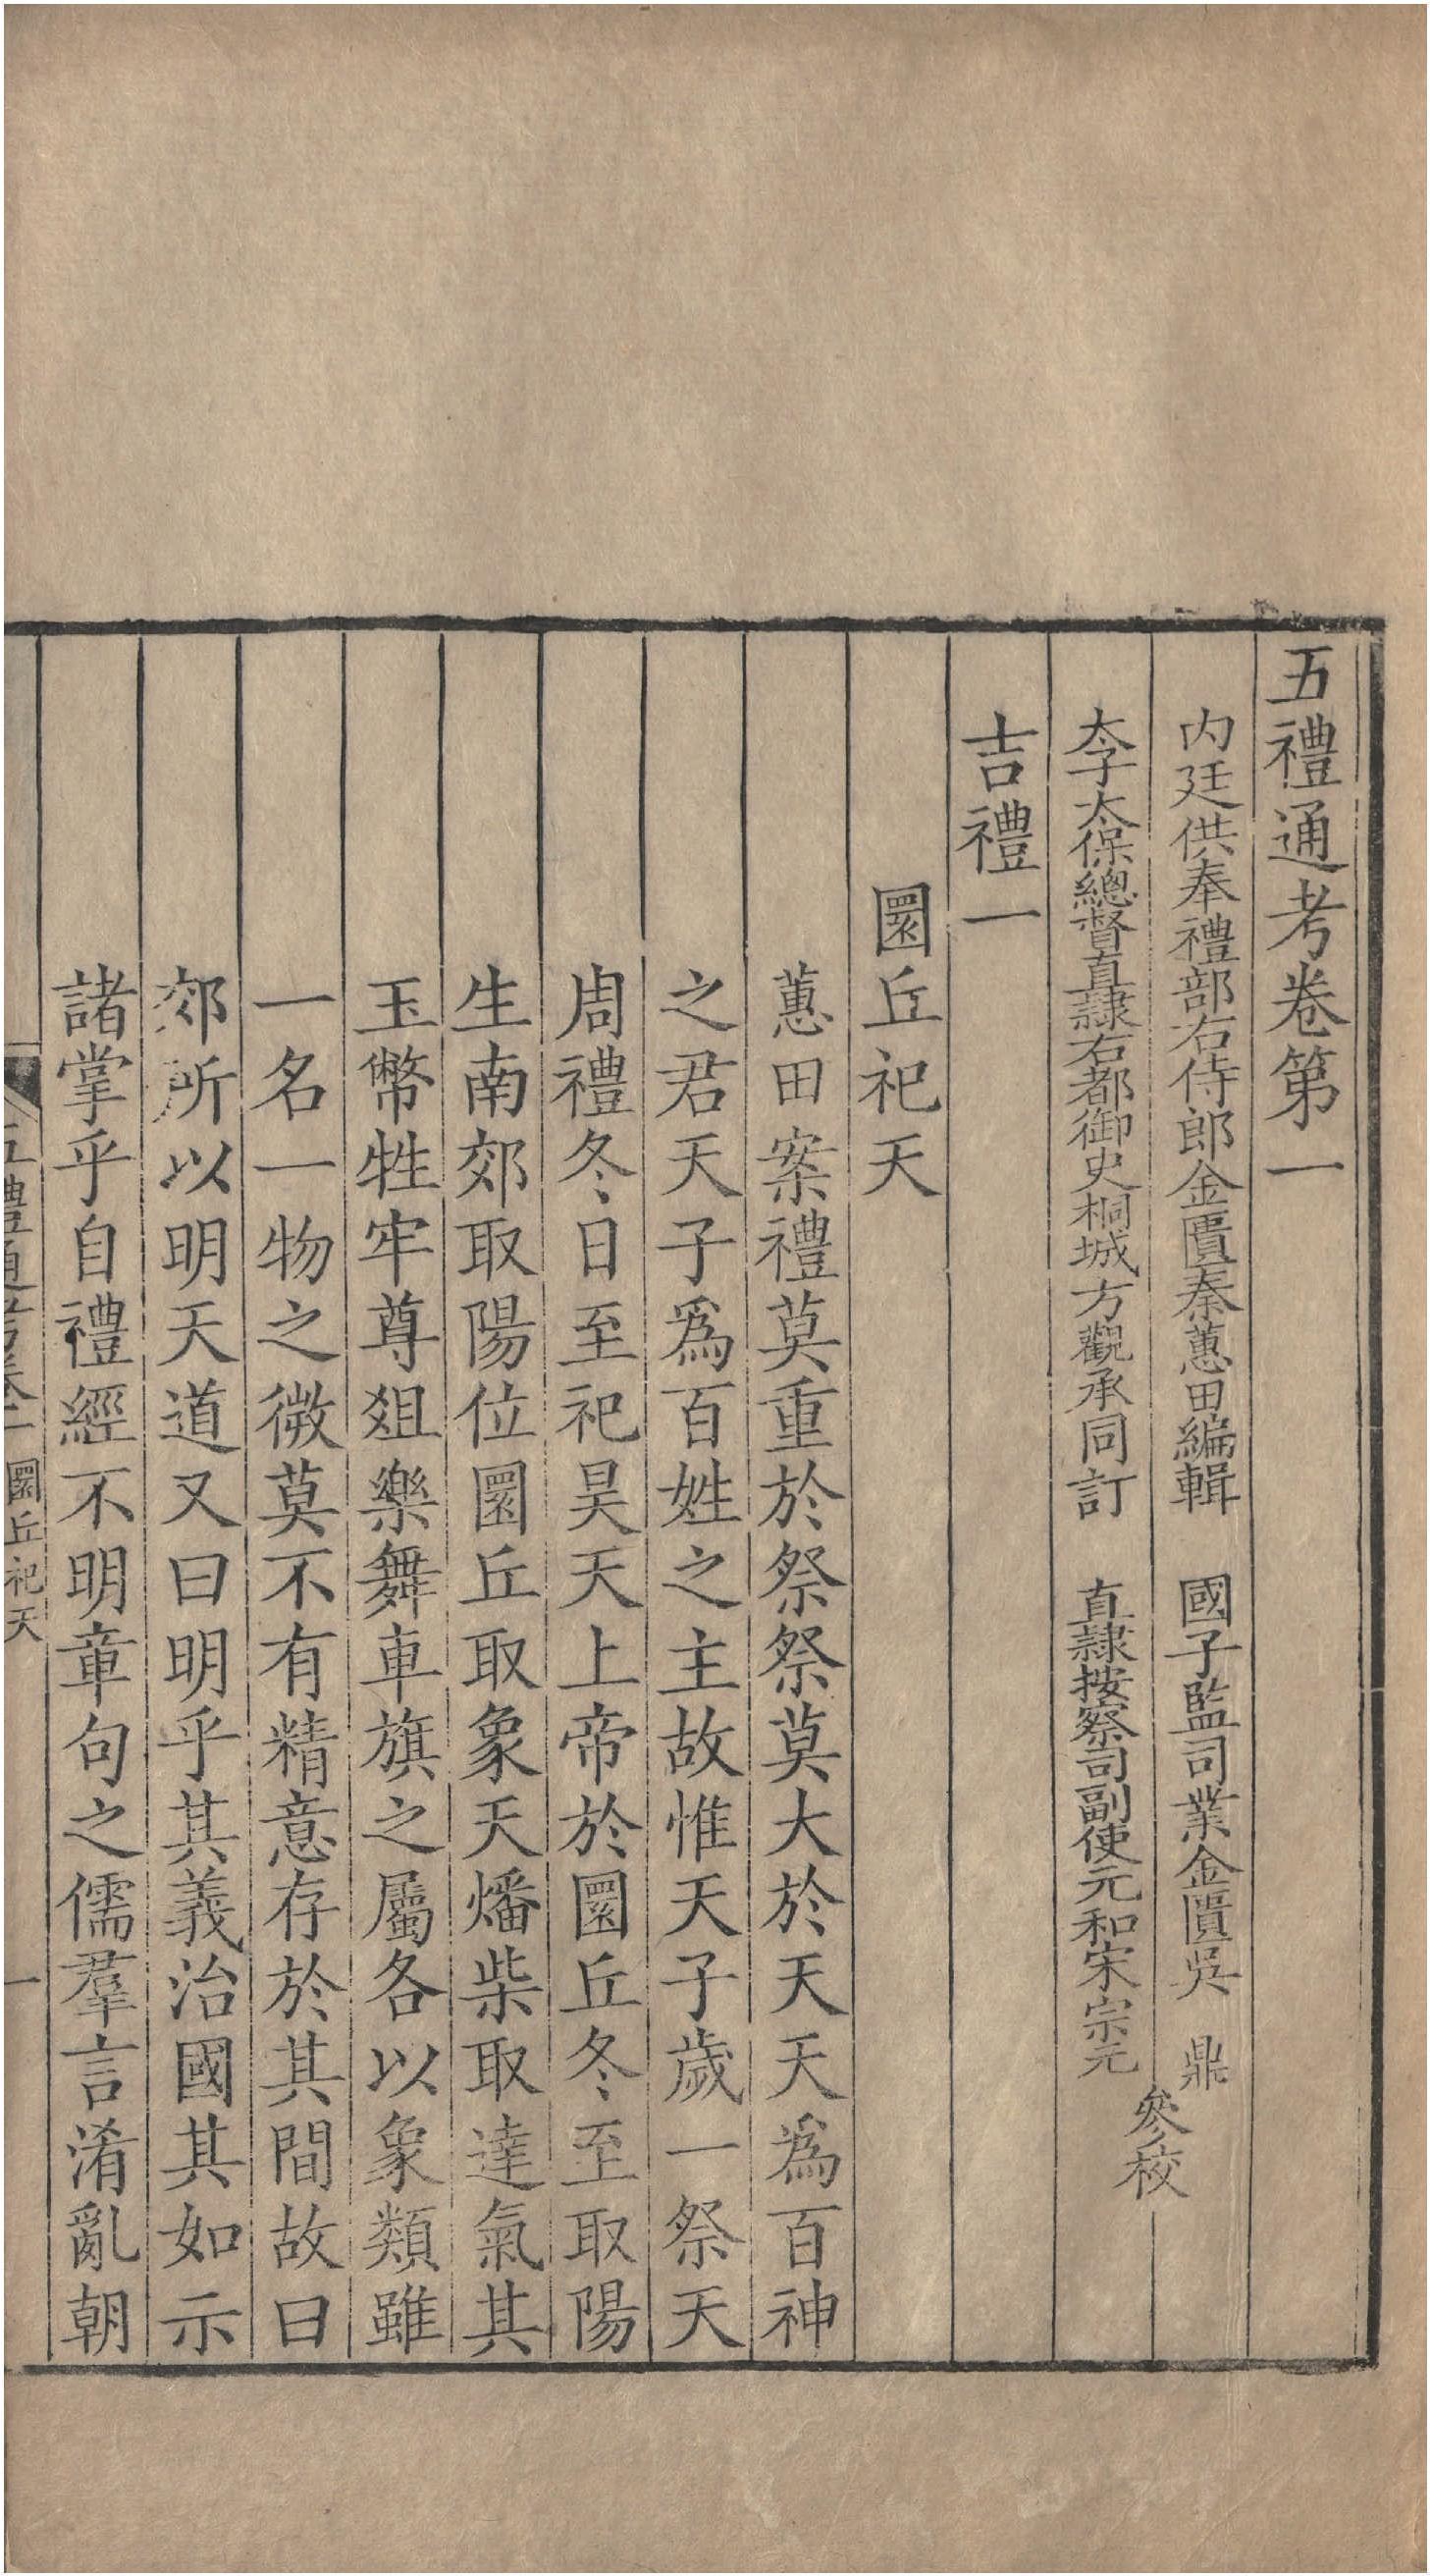 五禮通考卷第一
內廷供奉禮部右侍郎金匱秦蕙田編輯　國子監司業金匱吳　鼎
太子太保總督直隸右都御史桐城方觀承同訂　直隸按察司副使元和宋宗元
參校
吉禮一
圜丘祀天
蕙田案禮莫重於祭祭莫大於天天爲百神
之君天子爲百姓之主故惟天子歲一祭天
周禮冬日至祀昊天上帝於圜丘冬至取陽
生南郊取陽位圜丘取象天燔柴取達氣其
玉幣牲牢尊俎樂舞車旗之屬各以象類雖
一名一物之微莫不有精意存於其間故曰
郊所以明天道又曰明乎其義治國其如示
諸掌乎自禮經不明章句之儒羣言淆亂朝
五禮通考卷一　圜丘祀天　一